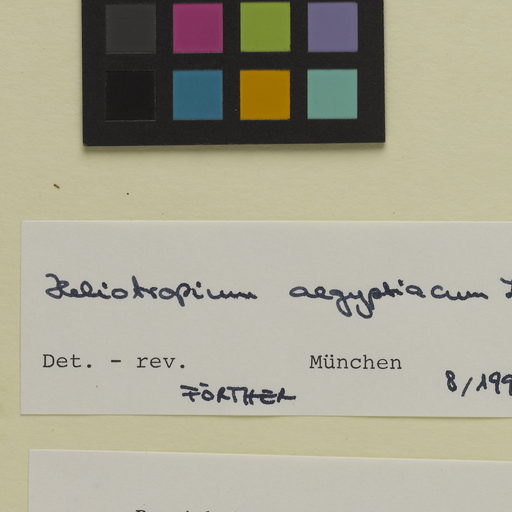 Heliotropium aegyptiacum
Det. - rev. München
FÖRTHER 8/199